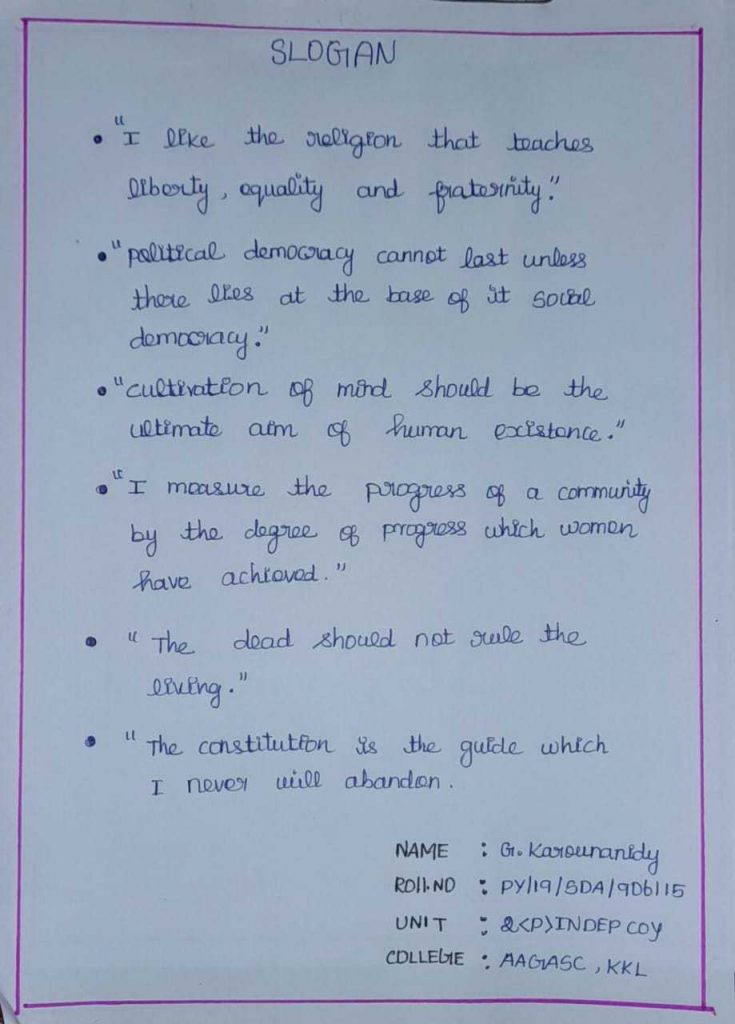 SLOGAN
• "I like the religion that teaches
liberty, equality and fraternity."
• "political democracy cannot last unless
there lies at the base of it social
democracy."
• "cultivation of mind should be the
ultimate aim of human existance."
• "I measure the progress of a community
by the degree of progress which women
have achieved."
• " The dead should not rule the
living."
• " The constitution is the guide which
I never will abandon.
NAME : G. Karounanidy
ROll.NO : PY/19/SDA/906115
UNIT : 2<P>INDEP COY
COLLEGE : AAGASC, KKL